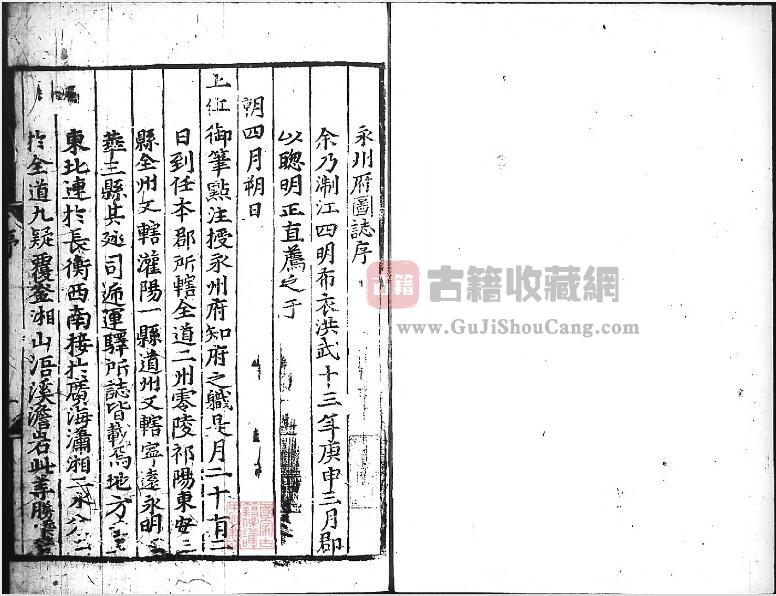 永州府圖誌序
余乃淛江四明布衣洪武十三年庚申三月郡
以聰明正直薦之于
朝四月朔日
上 御筆點注授永州府知府之職是月二十有二
日到任本郡所轄全道二州零陵祁陽東安三
縣全州又轄灌陽一縣道州又轄寧遠永明
華三縣其廵司逓運驛所誌皆載焉地方
東北連扵長衡西南接扵廣海瀟湘二水
扵全道九疑覆釜湘山浯溪澹岩此等勝
序
古籍
古籍收藏網
www.GuJiShouCang.com